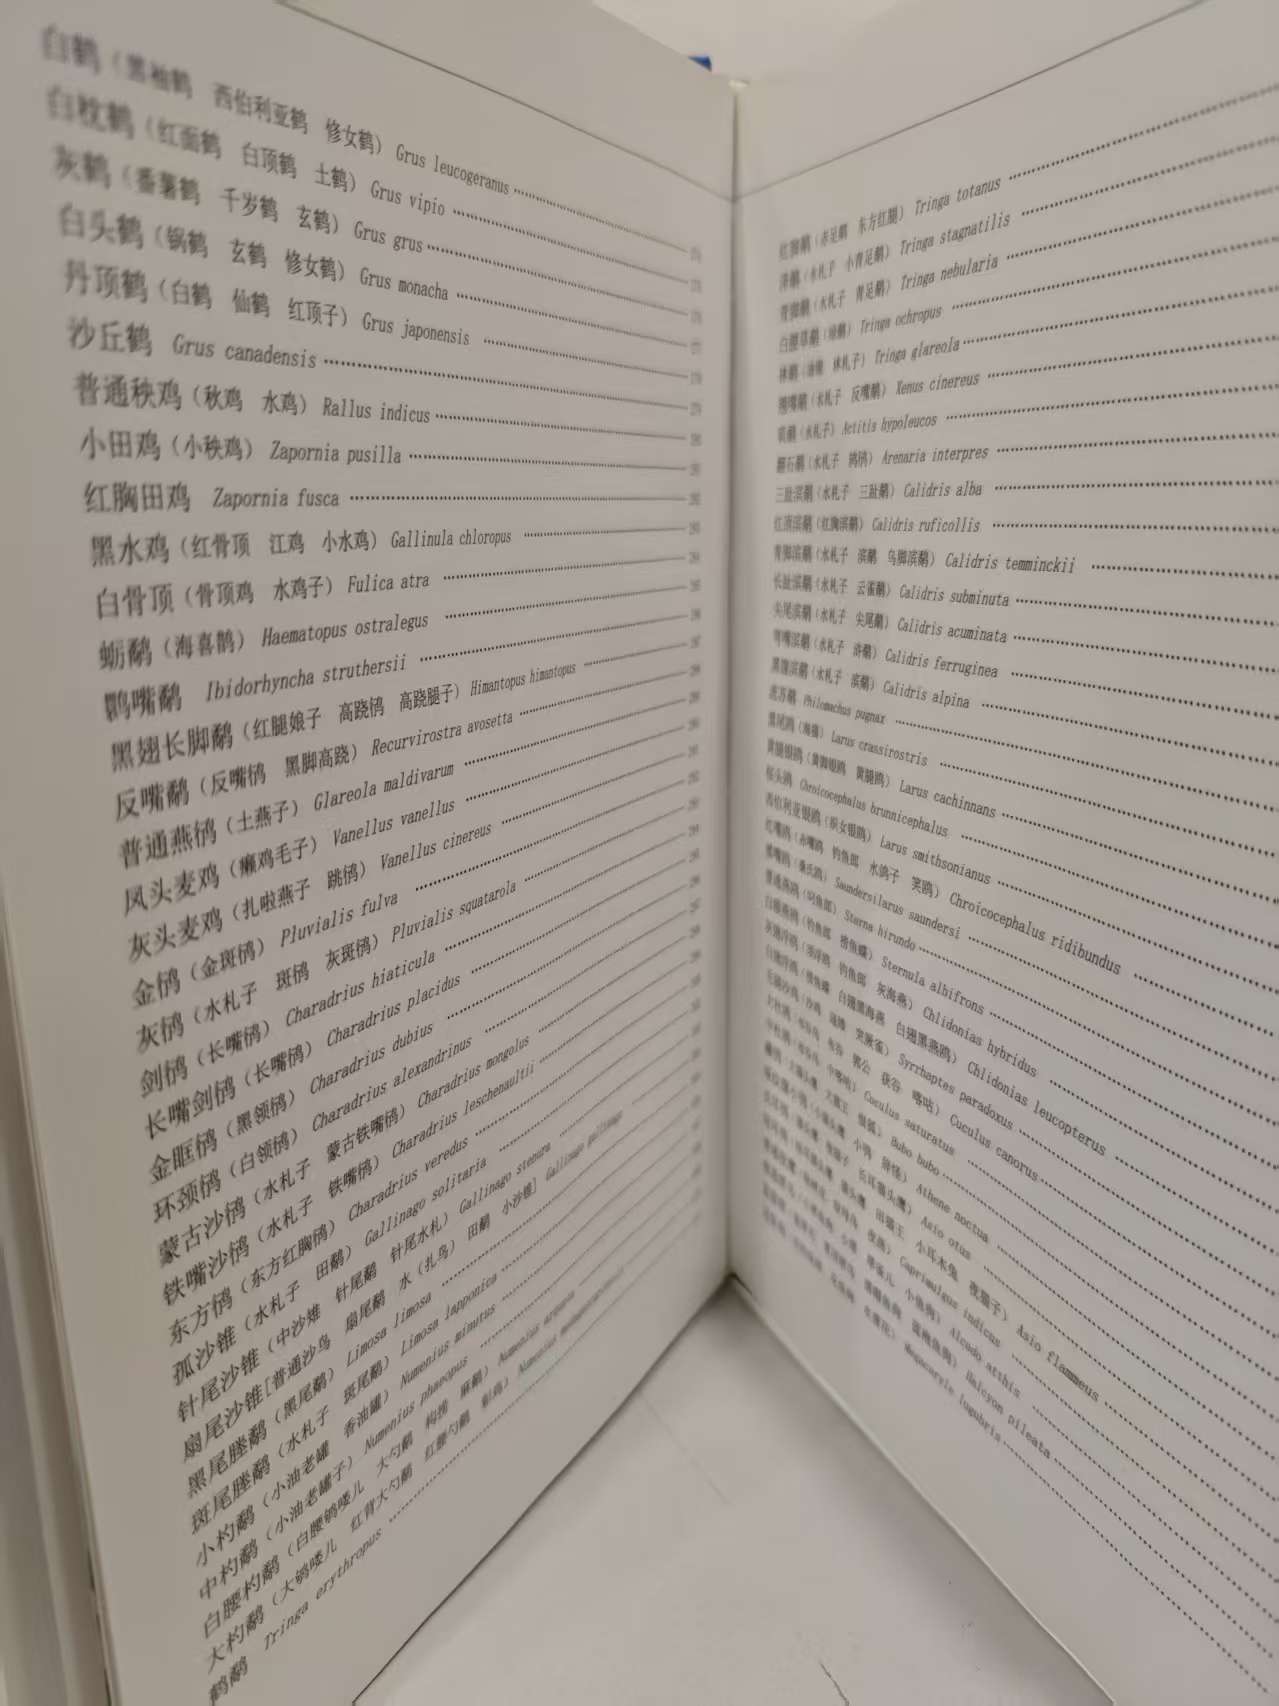 白鹤（黑袖鹤　西伯利亚鹤　修女鹤）Grus leucogeranus
白枕鹤（红面鹤　白顶鹤　土鹤）Grus vipio
灰鹤（番薯鹤　千岁鹤　玄鹤）Grus grus
白头鹤（锅鹤　玄鹤　修女鹤）Grus monacha
丹顶鹤（白鹤　仙鹤　红顶子）Grus japonensis
沙丘鹤　Grus canadensis
普通秧鸡（秋鸡　水鸡）Rallus indicus
小田鸡（小秧鸡）Zapornia pusilla
红胸田鸡　Zapornia fusca
黑水鸡（红骨顶　江鸡　小水鸡）Gallinula chloropus
白骨顶（骨顶鸡　水鸡子）Fulica atra
蛎鹬（海喜鹊）Haematopus ostralegus
鹮嘴鹬　Ibidorhyncha struthersii
黑翅长脚鹬（红腿娘子　高跷鸻　高跷腿子）Himantopus himantopus
反嘴鹬（反嘴鸻　黑脚高跷）Recurvirostra avosetta
普通燕鸻（土燕子）Glareola maldivarum
凤头麦鸡（癞鸡毛子）Vanellus vanellus
灰头麦鸡（扎啦燕子　跳鸻）Vanellus cinereus
金鸻（金斑鸻）Pluvialis fulva
灰鸻（水札子　斑鸻　灰斑鸻）Pluvialis squatarola
剑鸻（长嘴鸻）Charadrius hiaticula
长嘴剑鸻（长嘴鸻）Charadrius placidus
金眶鸻（黑领鸻）Charadrius dubius
环颈鸻（白领鸻）Charadrius alexandrinus
蒙古沙鸻（水札子　蒙古铁嘴鸻）Charadrius mongolus
铁嘴沙鸻（水札子　铁嘴鸻）Charadrius leschenaultii
东方鸻（东方红胸鸻）Charadrius veredus
孤沙锥（水札子　田鹬）Gallinago solitaria
针尾沙锥（中沙雉　针尾鹬　针尾水札）Gallinago stenura
扇尾沙锥[普通沙鸟　扇尾鹬　水（扎鸟）田鹬　小沙锥] Gallinago gallinago
黑尾塍鹬（黑尾鹬）Limosa limosa
斑尾塍鹬（水札子　斑尾鹬）Limosa lapponica
小杓鹬（小油老罐　香油罐）Numenius minutus
中杓鹬（小油老罐子）Numenius phaeopus
白腰杓鹬（白腰鸲喽儿　大勺鹬　构捶　麻鹬）Numenius arquata
大杓鹬（大鸲喽儿　红背大勺鹬　红腰勺鹬）Numenius
鹤鹬　Tringa erythropus
红脚鹬（赤足鹬　东方红腿）Tringa totanus
泽鹬（水札子　小青足鹬）Tringa stagnatilis
青脚鹬（水札子　青足鹬）Tringa nebularia
白腰草鹬（绿鹬）Tringa ochropus
林鹬（油锥　林札子）Tringa glareola
翘嘴鹬（水札子　反嘴鹬）Xenus cinereus
矶鹬（水札子）Actitis hypoleucos
翻石鹬（水札子　鸫鸻）Arenaria interpres
三趾滨鹬（水札子　三趾鹬）Calidris alba
红颈滨鹬（红胸滨鹬）Calidris ruficollis
青脚滨鹬（水札子　滨鹬　乌脚滨鹬）Calidris temminckii
长趾滨鹬（水札子　云雀鹬）Calidris subminuta
尖尾滨鹬（水札子　尖尾鹬）Calidris acuminata
弯嘴滨鹬（水札子　浒鹬）Calidris ferruginea
黑腹滨鹬（水札子　滨鹬）Calidris alpina
流苏鹬　Philomachus pugnax
黑尾鸥（海猫）Larus crassirostris
黄腿银鸥（黄脚银鸥　黄腿鸥）Larus cachinnans
棕头鸥　Chroicocephalus brunnicephalus
西伯利亚银鸥（织女银鸥）Larus smithsonianus
红嘴鸥（赤嘴鸥　钓鱼郎　水鸽子　笑鸥）Chroicocephalus ridibundus
黑嘴鸥（桑氏鸥）Saundersilarus saundersi
普通燕鸥（叼鱼郎）Sterna hirundo
白额燕鸥（钓鱼郎　捞鱼蝶）Sternula albifrons
灰翅浮鸥（须浮鸥　钓鱼郎　灰海燕）Chlidonias hybridus
白翅浮鸥（捞鱼蝶　白翅黑海燕　白翅黑燕鸥）Chlidonias leucopterus
毛腿沙鸡（沙鸡　突厥雀）Syrrhaptes paradoxus
大杜鹃（布谷鸟　郭公　获谷　喀咕）Cuculus canorus
中杜鹃（布谷鸟　中喀咕）Cuculus saturatus
雕鸮（大猫头鹰　大猫王　恨狐）Bubo bubo
纵纹腹小鸮（小猫头鹰　小鸮　辞怪）Athene noctua
长耳鸮（猫头鹰　夜猫子　长耳猫头鹰）Asio otus
短耳鸮（短耳猫头鹰　猫头鹰　田猫王　小耳木兔　夜猫子）Asio flammeus
普通夜鹰（蚊母鸟　夜燕）Caprimulgus indicus
普通翠鸟（小鱼狗）Alcedo atthis
蓝翡翠 Halcyon pileata
冠鱼狗 Megaceryle lugubris